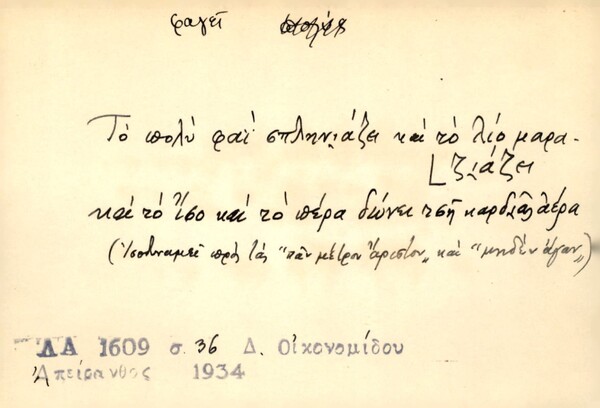 φαγεῖ
Τὸ πολὺ φαῒ σπληνιάζει καὶ τὸ λίο μαρα-
ζιάζει
καὶ τὸ ἴσο καὶ τὸ πέρα δώνει τσῆ καρδιᾶς ἀέρα
(Ἰσοδυναμεῖ πρὸς τὰς "πᾶν μέτρον ἄριστον„ καὶ "μηδὲν ἄγαν„)
ΛΑ 1609 σ. 36 Δ. Οἰκονομίδου
Ἀπείρανθος 1934